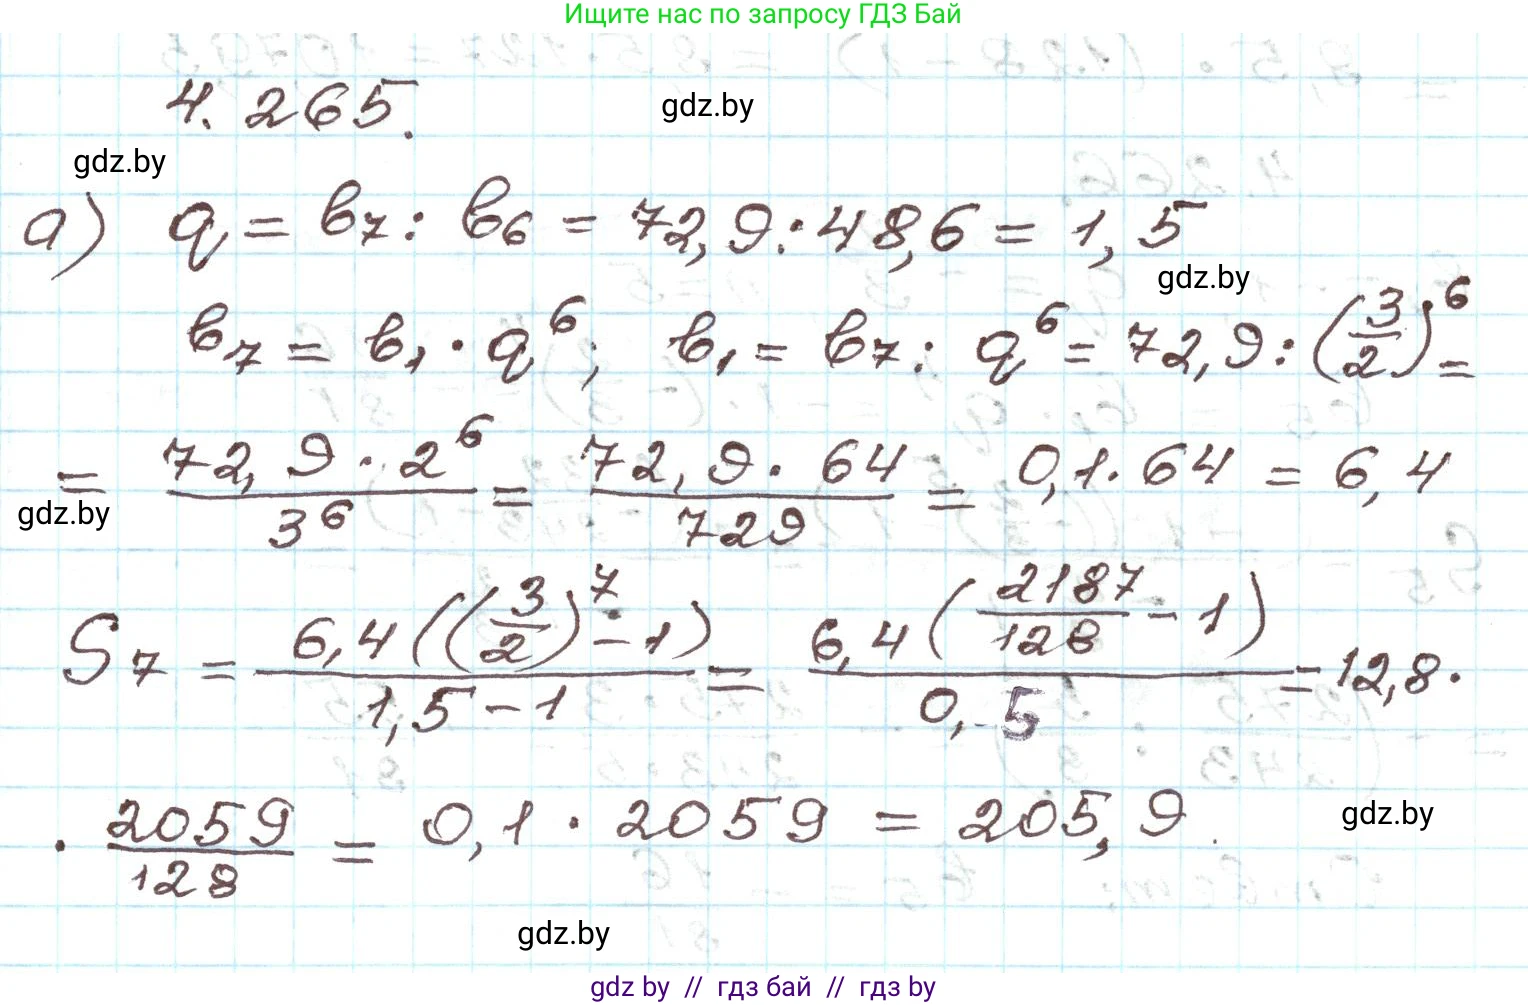 Ищите нас по запросу ГДЗ Бай
4.265.
gdz.by
gdz.by
а) q = b₇ : b₆ = 72,9 : 48,6 = 1,5
gdz.by
b₇ = b₁ · q⁶; b₁ = b₇ : q⁶ = 72,9 : (3/2)⁶ =
= 72,9 · 2⁶ / 3⁶ = 72,9 · 64 / 729 = 0,1 · 64 = 6,4
gdz.by
S₇ = 6,4((3/2)⁷ − 1) / 1,5 − 1 = 6,4(2187/128 − 1) / 0,5 = 12,8 ·
· 2059/128 = 0,1 · 2059 = 205,9.
gdz.by
gdz.by
gdz by // гдз бай // гдз by